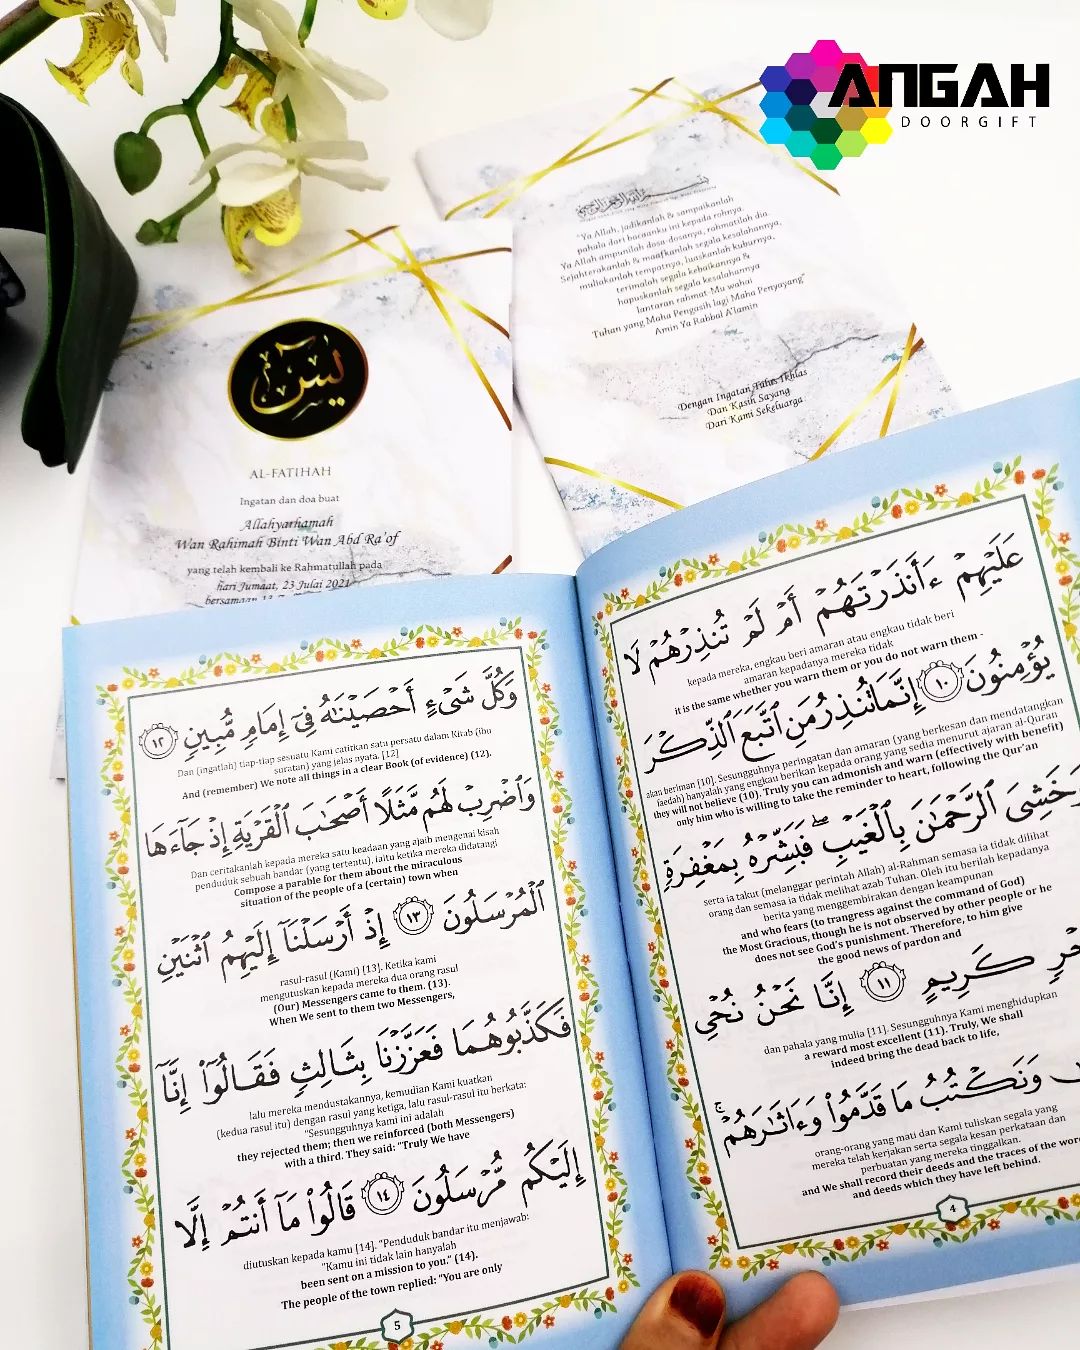 ANGAH
DOORGIFT
"Ya Allah, jadikanlah & sampaikanlah
pahala dari bacaanku ini kepada rohnya.
Ya Allah ampunilah dosa-dosanya, rahmatilah dia.
Sejahterakanlah & maafkanlah segala kesalahannya,
muliakanlah tempatnya, luaskanlah kuburnya,
terimalah segala kebaikannya &
hapuskanlah segala kesalahannya
lantaran rahmat Mu wahai
Tuhan yang Maha Pengasih lagi Maha Penyayang"
Amin Ya Rabbal A'lamin
Dengan Ingatan Tulus Ikhlas
Dan Kasih Sayang
Dari Kami Sekeluarga
يس
AL-FATIHAH
Ingatan dan doa buat
Allahyarhamah
Wan Rahimah Binti Wan Abd Ra'of
yang telah kembali ke Rahmatullah pada
hari Jumaat, 23 Julai 2021
bersamaan 13
عَلَيْهِمْ ءَأَنذَرْتَهُمْ أَمْ لَمْ تُنذِرْهُمْ لَا
kepada mereka, engkau beri amaran atau engkau tidak beri
amaran kepadanya mereka tidak
it is the same whether you warn them or you do not warn them -
يُؤْمِنُونَ ١٠ إِنَّمَا تُنذِرُ مَنِ ٱتَّبَعَ ٱلذِّكْرَ
akan beriman [10]. Sesungguhnya peringatan dan amaran (yang berkesan dan mendatangkan
faedah) hanyalah yang engkau berikan kepada orang yang sedia menurut ajaran al-Quran
they will not believe (10). Truly you can admonish and warn (effectively with benefit)
only him who is willing to take the reminder to heart, following the Qur'an
وَخَشِىَ ٱلرَّحْمَٰنَ بِٱلْغَيْبِ ۖ فَبَشِّرْهُ بِمَغْفِرَةٍ
serta ia takut (melanggar perintah Allah) al-Rahman semasa ia tidak dilihat
orang dan semasa ia tidak melihat azab Tuhan. Oleh itu berilah kepadanya
berita yang menggembirakan dengan keampunan
and who fears (to trangress against the command of God)
the Most Gracious, though he is not observed by other people or he
does not see God's punishment. Therefore, to him give
the good news of pardon and
كَرِيمٍ ١١ إِنَّا نَحْنُ نُحْىِ
dan pahala yang mulia [11]. Sesungguhnya Kami menghidupkan
a reward most excellent (11). Truly, We shall
indeed bring the dead back to life,
وَنَكْتُبُ مَا قَدَّمُوا۟ وَءَاثَٰرَهُمْ ۚ
orang-orang yang mati dan Kami tuliskan segala yang
mereka telah kerjakan serta segala kesan perkataan dan
perbuatan yang mereka tinggalkan.
and We shall record their deeds and the traces of the
and deeds which they have left behind.
4
وَكُلَّ شَىْءٍ أَحْصَيْنَٰهُ فِىٓ إِمَامٍ مُّبِينٍ ١٢
Dan (ingatlah) tiap-tiap sesuatu Kami catitkan satu persatu dalam Kitab (ibu
suratan) yang jelas nyata. [12]
And (remember) We note all things in a clear Book (of evidence) (12).
وَٱضْرِبْ لَهُم مَّثَلًا أَصْحَٰبَ ٱلْقَرْيَةِ إِذْ جَآءَهَا
Dan ceritakanlah kepada mereka satu keadaan yang ajaib mengenai kisah
penduduk sebuah bandar (yang tertentu). Iaitu ketika mereka didatangi
Compose a parable for them about the miraculous
situation of the people of a (certain) town when
ٱلْمُرْسَلُونَ ١٣ إِذْ أَرْسَلْنَآ إِلَيْهِمُ ٱثْنَيْنِ
rasul-rasul (Kami) [13]. Ketika kami
mengutuskan kepada mereka dua orang rasul
(Our) Messengers came to them. (13).
When We sent to them two Messengers,
فَكَذَّبُوهُمَا فَعَزَّزْنَا بِثَالِثٍ فَقَالُوٓا۟ إِنَّآ
lalu mereka mendustakannya, kemudian Kami kuatkan
(kedua rasul itu) dengan rasul yang ketiga, lalu rasul-rasul itu berkata:
"Sesungguhnya kami ini adalah
they rejected them; then we reinforced (both Messengers)
with a third. They said: "Truly We have
إِلَيْكُم مُّرْسَلُونَ ١٤ قَالُوا۟ مَآ أَنتُمْ إِلَّا
diutuskan kepada kamu [14]. "Penduduk bandar itu menjawab:
"Kamu ini tidak lain hanyalah
been sent on a mission to you." (14).
The people of the town replied: "You are only
5